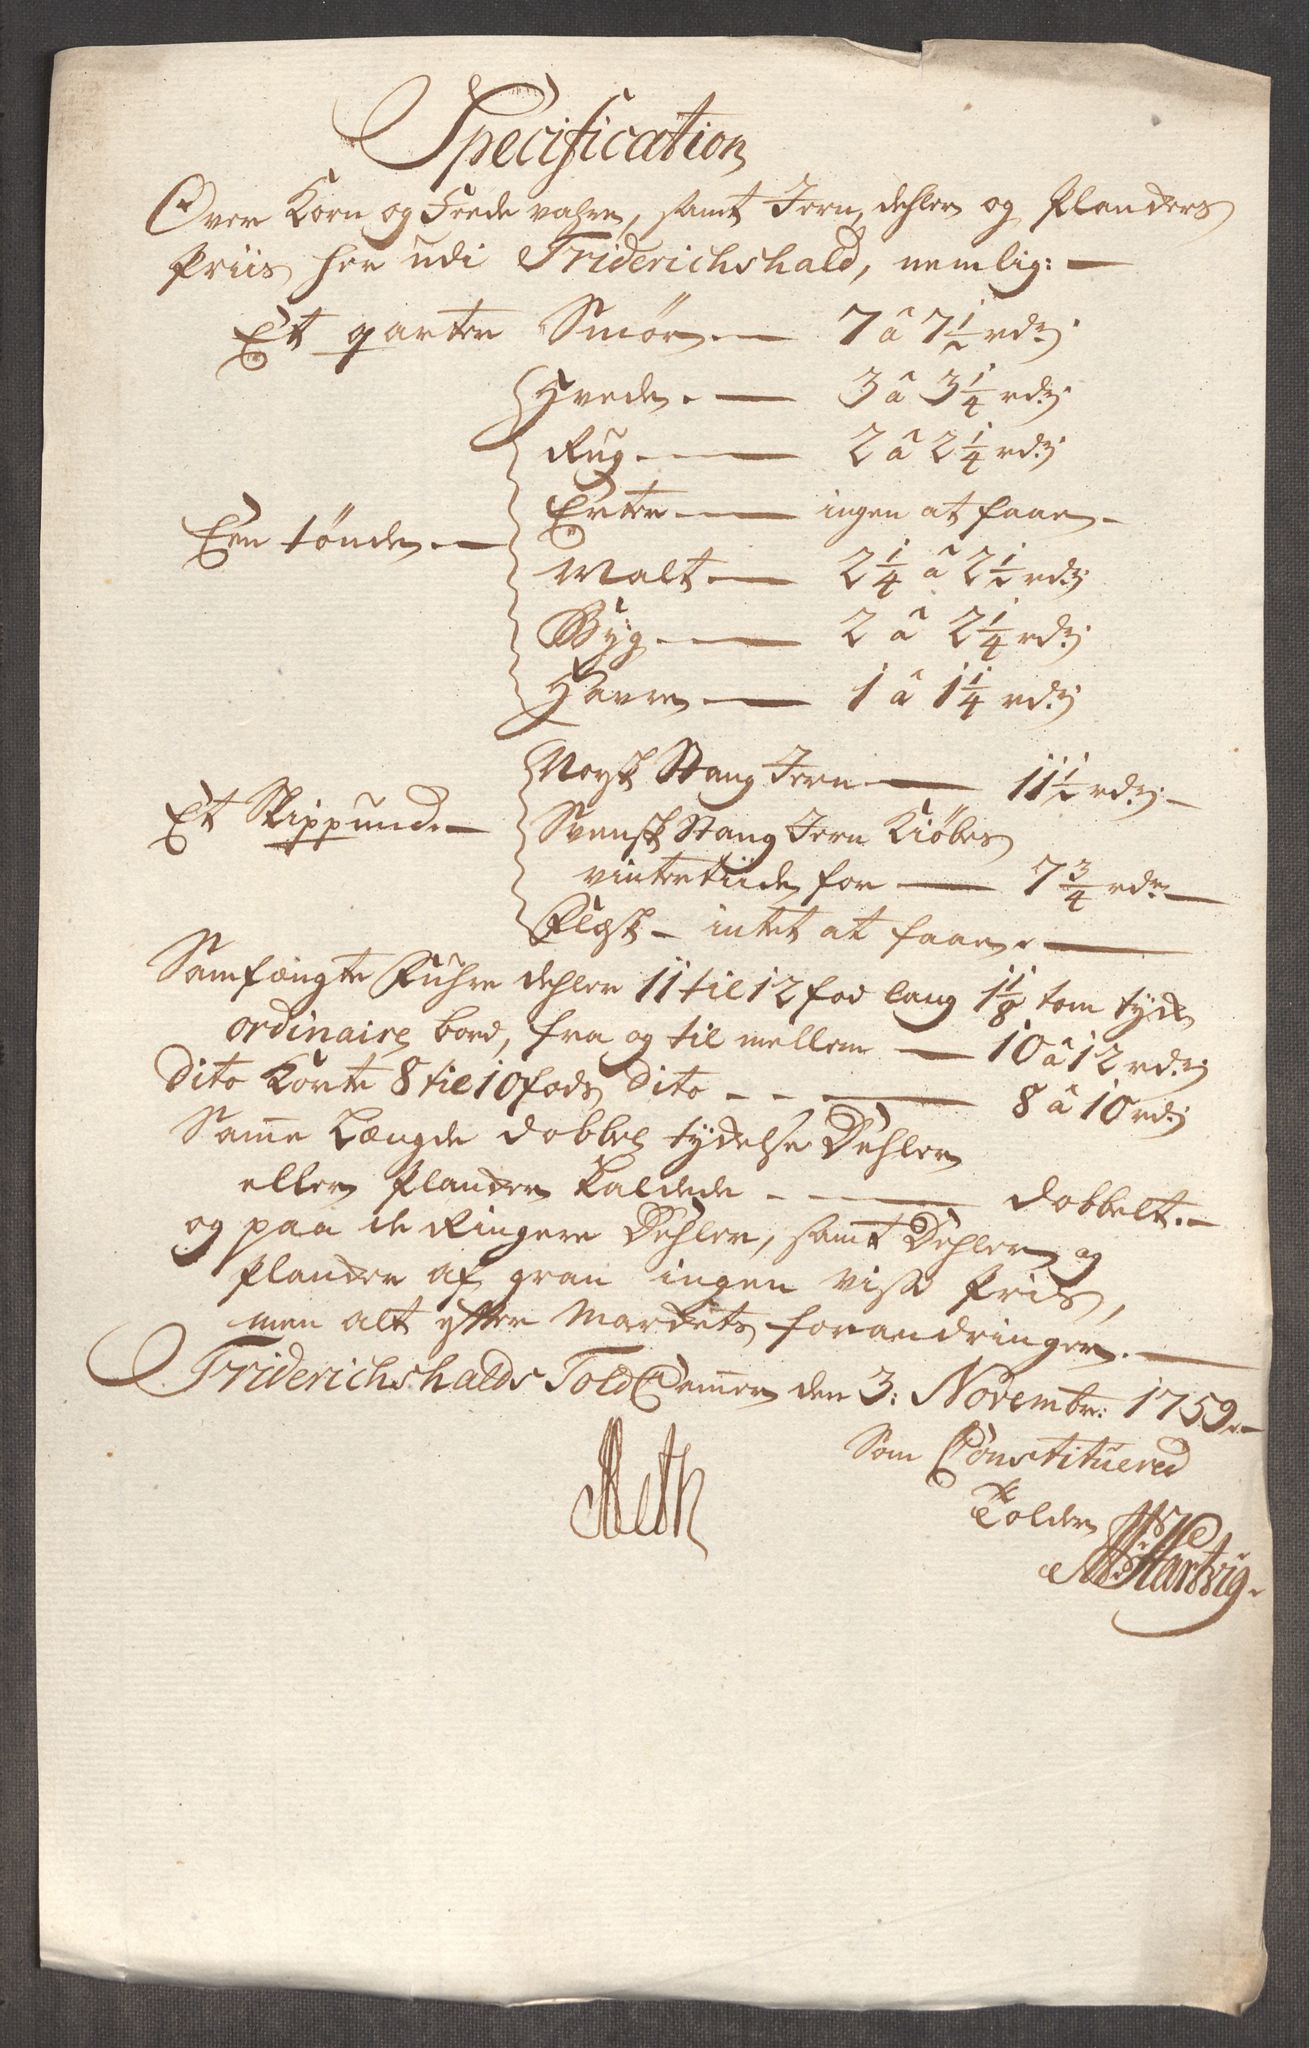 Specification
Over Korn og Feede vahre, samt Jern, dehler og Planckers
Priis her udi Friderichshald, nemlig: —
Et qarter Smør — 7 â 7 1/2 rdr
Hvede — 3 â 3 1/4 rdr
Rug — 2 â 2 1/4 rdr
Erter — ingen at faae —
Een tønde —
Malt — 2 1/4 â 2 1/2 rdr
Byg — 2 â 2 1/4 rdr
Havre — 1 â 1 1/4 rdr
Norsk Stang Jern — 11 1/2 rdr —
Et Skippund —
Svensk Stang Jern Kiöbes
vintertiide for — 7 3/4 rdr —
Flesk — intet at faae —
Samfængte Fuhre dehler 11 til 12 fod lang 1 1/8 tom tyck
ordinaire bord, fra og til mellem — 10 â 12 rdr
Dito Korte 8 til 10 fods Dito — 8 â 10 rdr
Samme Længde dobbel tyckelse Dehler
eller Plancker kaldede — dobbelt. —
og paa de Ringere Dehler, samt Dehler og
Plancker af gran ingen viss Pris,
men alt efter Marckets forandringer. —
Friderichshalds Told Cammer den 3: Novembr: 1759. —
Som Constituered
Tolder
Hartvig